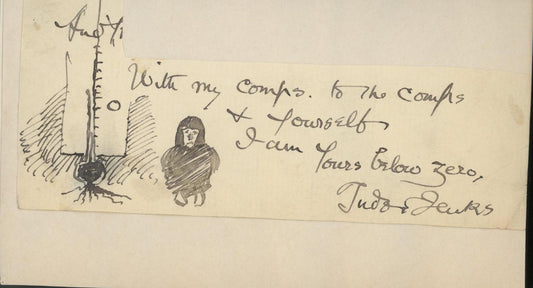 With my comps. to the comps
& yourself
I am Yours below zero,
Tudor Jenks